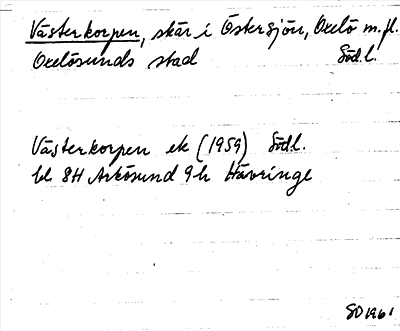 Västerkorpen, skär i Östersjön, Oxelö m.fl.
Oxelösunds stad Södl.
Västerkorpen ek (1959) Södl.
bl. 8H Arkösund 9h Hävringe
SO 1961